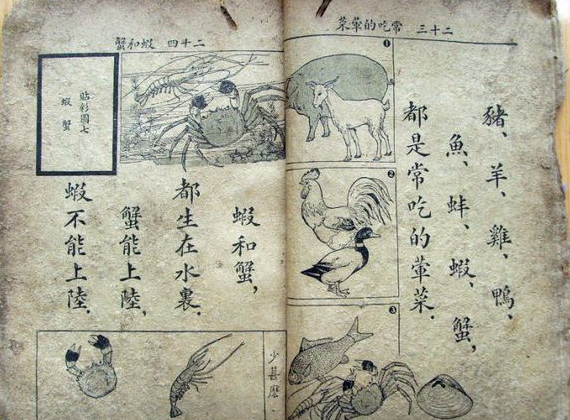 二十三 常吃的葷菜
豬、羊、雞、鴨、
魚、蚌、蝦、蟹，
都是常吃的葷菜．
1
2
3
二十四 蝦和蟹
貼彩圖七
蝦 蟹
蝦和蟹，
都生在水裏．
蟹能上陸，
蝦不能上陸．
少甚麽